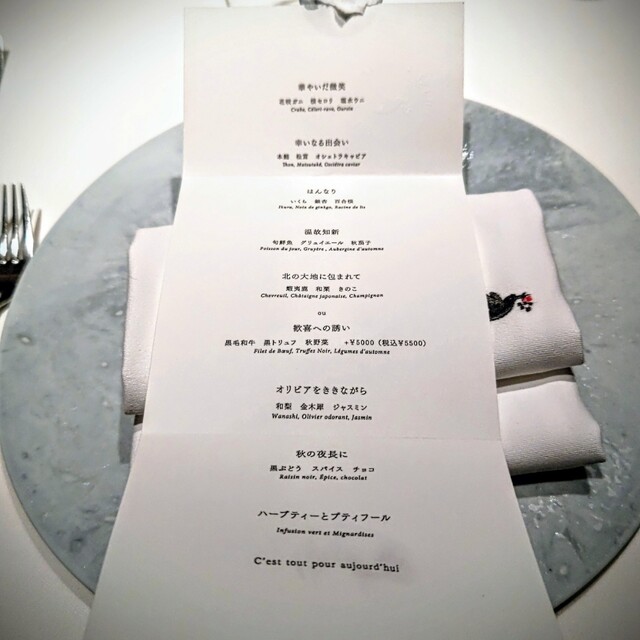 華やいだ微笑
花咲ガニ 根セロリ 雲丹
Crabe, Céleri rave, Oursin
幸いなる出会い
本鮪 松茸 オシェトラキャビア
Thon, Matsutaké, Osciètre caviar
はんなり
いくら 銀杏 百合根
Ikura, Noix de ginkgo, Racine de lis
温故知新
旬鮮魚 グリュイエール 秋茄子
Poisson du jour, Gruyère, Aubergine d'automne
北の大地に包まれて
蝦夷鹿 和栗 きのこ
Chevreuil, Châtaigne japonaise, Champignon
ou
歓喜への誘い
黒毛和牛 黒トリュフ 秋野菜 +¥5000 (税込¥5500)
Filet de Bœuf, Truffes Noir, Légumes d'automne
オリビアをききながら
和梨 金木犀 ジャスミン
Wanashi, Olivier odorant, Jasmin
秋の夜長に
黒ぶどう スパイス チョコ
Raisin noir, Épice, chocolat
ハーブティーとプティフール
Infusion vert et Mignardises
C'est tout pour aujourd'hui